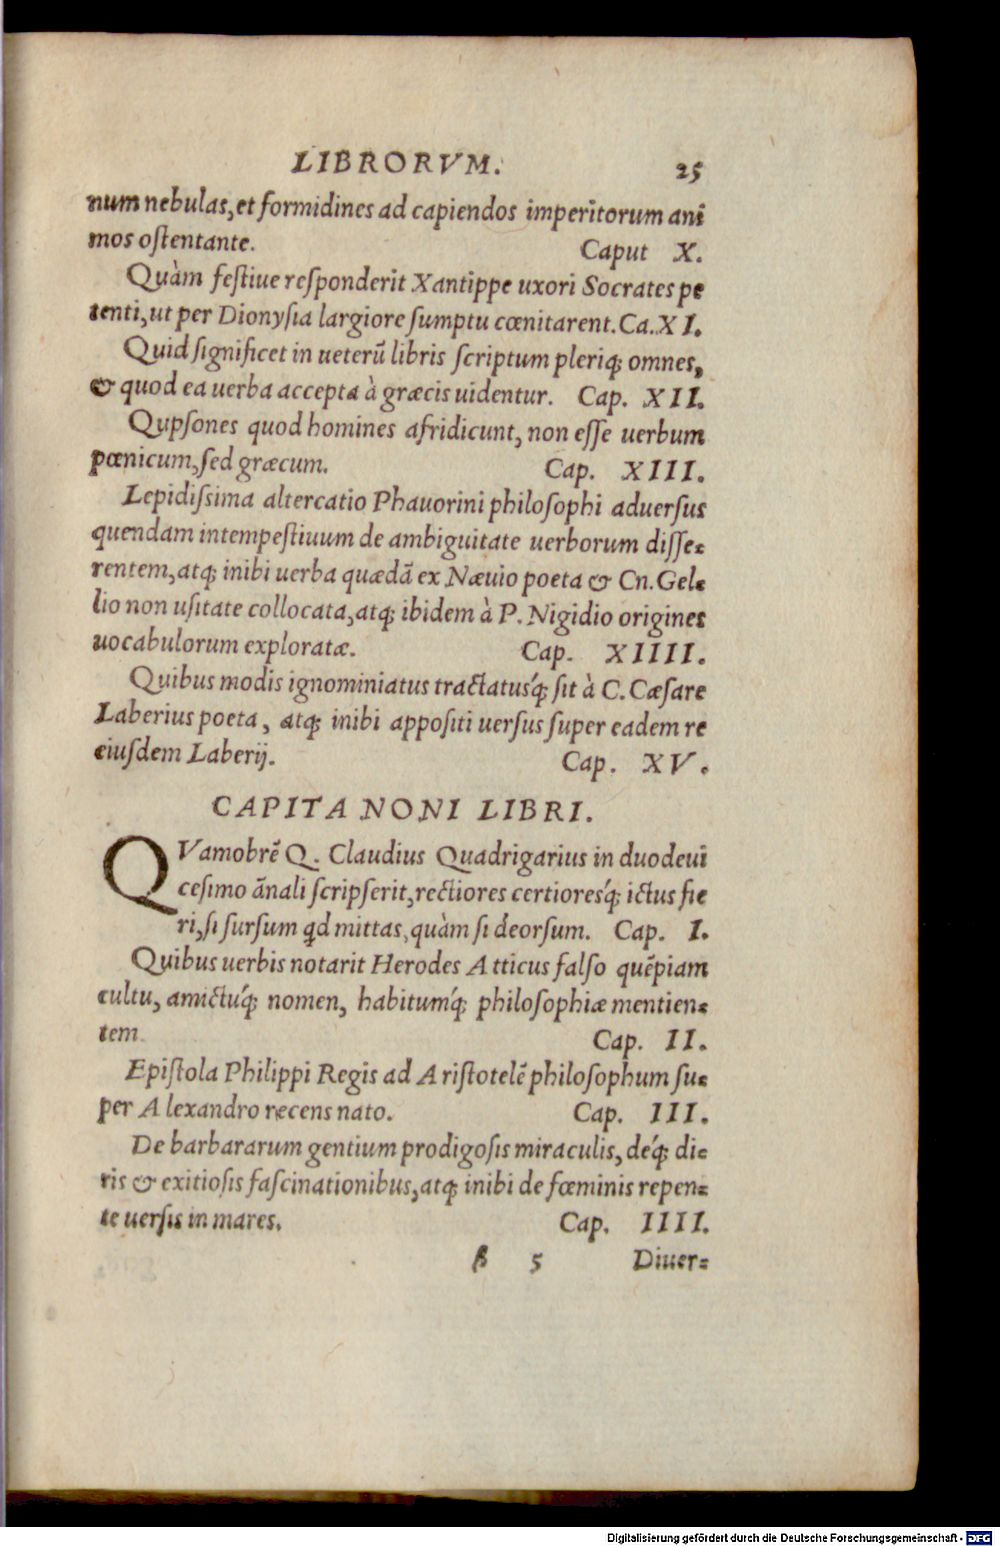 LIBRORVM. 25
num nebulas, et formidines ad capiendos imperitorum ani
mos ostentante. Caput X.
Quàm festiue responderit Xantippe uxori Socrates pe
tenti, ut per Dionysia largiore sumptu cœnitarent. Ca. XI.
Quid significet in ueterū libris scriptum pleriq; omnes,
& quod ea uerba accepta à græcis uidentur. Cap. XII.
Qupsones quod homines afridicunt, non esse uerbum
pœnicum, sed græcum. Cap. XIII.
Lepidissima altercatio Phauorini philosophi aduersus
quendam intempestiuum de ambiguitate uerborum disse-
rentem, atq; inibi uerba quædā ex Næuio poeta & Cn. Gel-
lio non usitate collocata, atq; ibidem à P. Nigidio origines
uocabulorum exploratæ. Cap. XIIII.
Quibus modis ignominiatus tractatusq́; sit à C. Cæsare
Laberius poeta, atq; inibi appositi uersus super eadem re
eiusdem Laberij. Cap. XV.
CAPITA NONI LIBRI.
QVamobrē Q. Claudius Quadrigarius in duodeui
cesimo ānali scripserit, rectiores certioresq́; ictus fie
ri, si sursum qd mittas, quàm si deorsum. Cap. I.
Quibus uerbis notarit Herodes Atticus falso quēpiam
cultu, amictuq́; nomen, habitumq́; philosophiæ mentien-
tem. Cap. II.
Epistola Philippi Regis ad Aristotelē philosophum su-
per Alexandro recens nato. Cap. III.
De barbararum gentium prodigosis miraculis, deq́; di-
ris & exitiosis fascinationibus, atq; inibi de fœminis repen-
te uersis in mares. Cap. IIII.
β 5 Diuer-
Digitalisierung gefördert durch die Deutsche Forschungsgemeinschaft - DFG